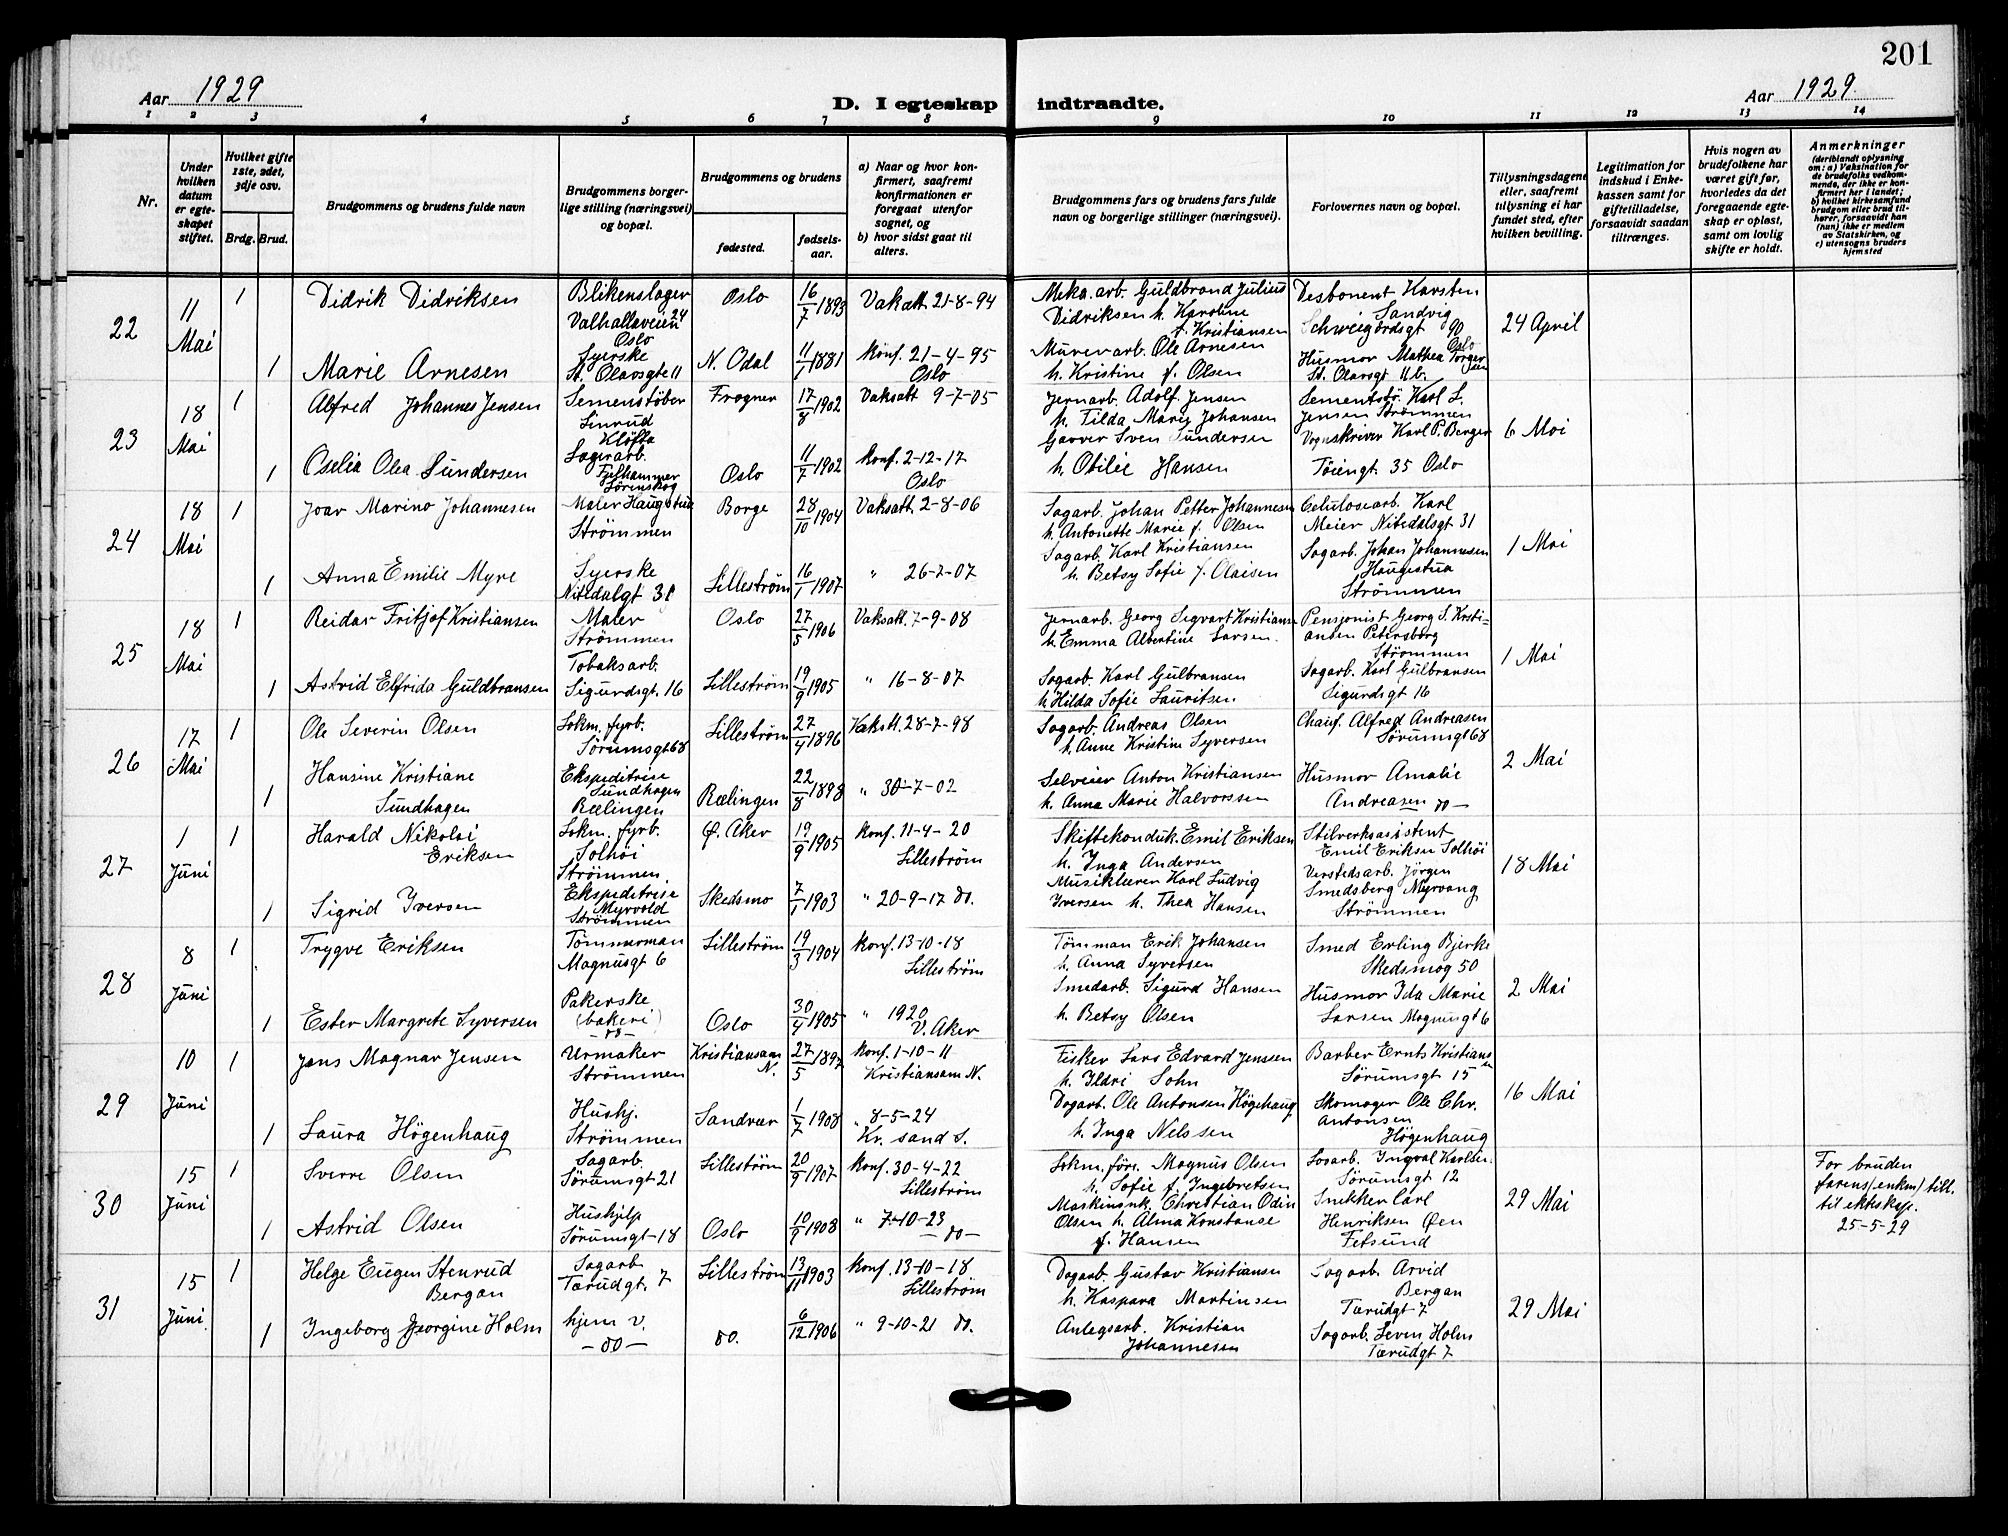 201
Aar 1929
D. I egteskap indtraadte.
Aar 1929.
1 2 3 4 5 6 7 8 9 10 11 12 13 14
Nr.
Under hvilken datum er egteskapet stiftet.
Hvilket gifte 1ste, 2det, 3dje osv.
Brdg. Brud.
Brudgommens og brudens fulde navn
Brudgommens borgerlige stilling (næringsvei) og bopæl.
Brudgommens og brudens
fødested.
fødselsaar.
a) Naar og hvor konfirmert, saafremt konfirmationen er foregaat utenfor sognet, og
b) hvor sidst gaat til alters.
Brudgommens fars og brudens fars fulde navn og borgerlige stillinger (næringsvei).
Forlovernes navn og bopæl.
Tillysningsdagene eller, saafremt tillysning ei har fundet sted, efter hvilken bevilling.
Legitimation for indskud i Enkekassen samt for giftetilladelse, forsaavidt saadan tiltrænges.
Hvis nogen av brudefolkene har været gift før, hvorledes da det foregaaende egteskap er opløst, samt om lovlig skifte er holdt.
Anmerkninger
(deriblandt oplysning om: a) Vaksination for de brudefolks vedkommende, der ikke er konfirmert her i landet; b) hvilket kirkesamfund brudgom eller brud tilhører, forsaavidt han (hun) ikke er medlem av Statskirken, og c) utensogns bruders hjemsted
22
11 Mai
1
Didrik Didriksen
Blikenslager
Valhallaveien 24
Oslo
Oslo
16/7 1893
Vakatt 21-8-94
Meka. arb. Guldbrand Julius
Didriksen h. Karoline
f. Kristiansen
Desbonent Karsten
Sandvig
Schweigårdsgt 90
Oslo
24 April
1
Marie Arnesen
Syerske
St. Olavsgte 11
N. Odal
11/1 1881
Konf. 21-4-95
Oslo
Murerarb. Ole Arnesen
h. Kristine f. Olsen
Husmor Mathea Torgersen
St. Olavsgt 11 b.
23
18 Mai
1
Alfred Johannes Jensen
Sementstøber
Linrud
Kløfta
Frogner
17/8 1902
Vaksatt 9-7-05
Jernarb. Adolf Jensen
h. Tilda Marie Johansen
Sementstø. Karl L.
Jensen Strømmen
6 Mai
1
Oselia Olea Sundersen
Lagerarb.
Fjelhammer
Lørenskog
Oslo
11/7 1902
Konf. 2-12-17
Oslo
Garver Sven Sundersen
h. Otilie Hansen
Vognskriver Karl P. Berger
Tøiengt 35 Oslo
24
18 Mai
1
Joar Marino Johannesen
Maler Haugstua
Strømmen
Borge
28/10 1904
Vaksatt 2-8-06
Sagarb. Johan Petter Johannesen
h. Antonette Marie f. Olsen
Celulosearb. Karl
Meier Nitedalsgt 31
1 Mai
1
Anna Emilie Myre
Syerske
Nitedalgt 31
Lillestrøm
16/1 1907
" 26-7-07
Sagarb. Karl Kristiansen
h. Betsy Sofie f. Olaisen
Sagarb. Johan Johannesen
Haugstua
Strømmen
25
18 Mai
1
Reidar Fritjof Kristiansen
Maler
Strømmen
Oslo
27/5 1906
Vaksatt. 7-9-08
Jernarb. Georg Sigvart Kristiansen
h. Emma Albertine Larsen.
Pensjonist Georg S. Kristi-
ansen Petersborg
Strømmen
1 Mai
1
Astrid Elfrida Guldbransen
Tobaksarb.
Sigurdsgt. 16
Lillestrøm
19/9 1905
" 16-8-07
Sagarb. Karl Gulbransen
h. Hilda Sofie Lauritsen
Sagarb. Karl Gulbransen
Sigurdsgt 16
26
17 Mai
1
Ole Severin Olsen
Lokm. fyrb.
Sørumsgt 68
Lillestrøm
27/4 1896
Vaksatt. 28-7-98
Sagarb. Andreas Olsen
h. Anne Kristine Syversen
Chauf. Alfred Andreasen
Sørumsgt 68
2 Mai
1
Hansine Kristiane
Sundhagen
Ekspeditrise
Sundhagen
Rælingen
Rælingen
22/8 1898
" 30-7-02
Selveier Anton Kristiansen
h. Anna Marie Halvorssen
Husmor Amalie
Andreasen do —
27
1 Juni
1
Harald Nikolai
Eriksen
Lokm. fyrb.
Solhøi
Strømmen
Ø. Aker
19/9 1905
Konf. 11-4-20
Lillestrøm
Skiftekonduk. Emil Eriksen
h. Inga Andersen
Stilverksasistent
Emil Eriksen Solhøi
18 Mai
1
Sigrid Iversen
Ekspeditrise
Myrvold
Strømmen
Skedsmo
7/1 1903
" 20-9-17 do.
Musiklærer Karl Ludvig
Iversen h. Thea Hansen
Verstedsarb. Jörgen
Smedsberg Myrvang
Strømmen
28
8 Juni
1
Trygve Eriksen
Tömmerman
Magnusgt 6
Lillestrøm
19/3 1904
Konf. 13-10-18
Lillestrøm
Tömman Erik Johansen
h. Anna Syversen
Smed Erling Bjerke
Skedsmog 50
2 Mai
1
Ester Margrete Syversen
Pakerske
(bakeri)
— do —
Oslo
30/4 1905
" 1920
V. Aker
Smedarb. Sigurd Hansen
h. Betsy Olsen
Husmor Ida Marie
Larsen Magnusgt 6
29
10 Juni
1
Jens Magnar Jensen
Urmaker
Strømmen
Kristiansam
N.
27/5 1897
Konf. 1-10-11
Kristiansam N.
Fisker Lars Edvard Jenssen
h. Ildri Sohn
Barber Ernts Kristiansen
Sørumsgt 15
16 Mai
1
Laura Högenhaug
Hushj.
Strømmen
Sandvær
1/7 1908
" 8-5-24
Kr. sand S.
Dagarb. Ole Antonsen Högehaug
h. Inga Nelssen
Skomager Ole Chr.
Antonsen
Högenhaug
30
15 Juni
1
Sverre Olsen
Sagarb.
Sørumsgt 21
Lillestrøm
20/9 1907
Konf. 30-4-22
Lillestrøm
Lokm. före. Magnus Olsen
h. Sofie f. Ingebretsen
Sagarb. Ingval Karlsen.
Sørumsgt 12
29 Mai
For bruden
farens (enkm) till.
til ekteskap.
25-5-29
1
Astrid Olsen
Hushjelp
Sørumsgt — 18
Oslo
10/9 1908
" 7-10-23
— do —
Maskinsnk. Christian Odin
Olsen h. Alma Konstanse
f. Hansen
Snekker Carl
Henriksen Øen
Fetsund
31
15 Juni.
1
Helge Eugen Stenrud
Bergan
Sagarb.
Tærudgt. 7
Lillestrøm
13/11 1903
Konf. 13-10-18
Lillestrøm
Dagarb. Gustav Kristiansen
h. Kaspara Martinsen
Sagarb Arvid
Bergan
Tærudgt 7
29 Mai
1
Ingeborg Georgine Holm
hjem v.
— do —
do.
6/12 1906
" 9-10-21 do.
Anlegsarb. Kristian
Johannesen
Sagarb. Seven Holm
Tærudgt 7